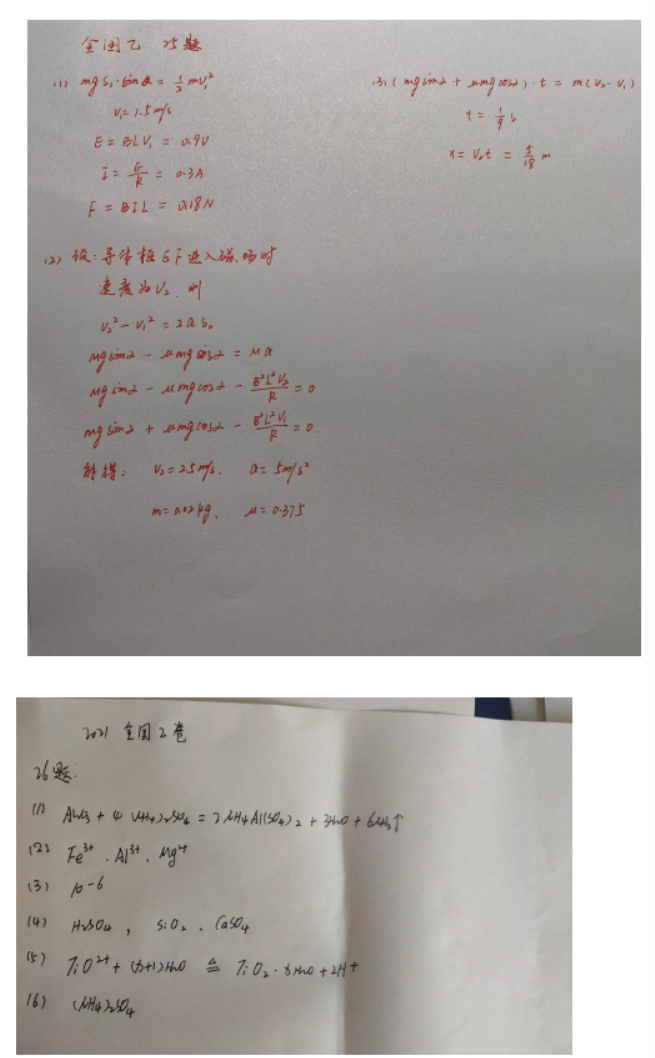 全国乙 25题
(1) mg s₁·sinα = ½ mv₁²
v₁=1.5m/s
E = BLV₁ = 0.9V
I = E/R = 0.3A
F = BIL = 0.18N
(2) 设:导体棒EF进入磁场时
速度为V₂,则
V₂² - V₁² = 2as₀
Mgsinα - μmgcosα = Ma
Mgsinα - μmgcosα - B²L²V₂/R = 0
mgsinα + μmgcosα - B²L²V₁/R = 0
解得: V₂=2.5m/s、 a=5m/s²
m=0.02kg、 μ=0.375
(3) (mgsinα + μmgcosα)·t = m(V₂-V₁)
t = 1/9 s
x = V₂t = 5/18 m
2021 全国2卷
26题:
(1) Al₂O₃ + 4(NH₄)₂SO₄ = 2NH₄Al(SO₄)₂ + 3H₂O + 6NH₃↑
(2) Fe³⁺、Al³⁺、Mg²⁺
(3) 10⁻⁶
(4) H₂SO₄, SiO₂、CaSO₄
(5) TiO²⁺ + (x+1)H₂O ≜ TiO₂·xH₂O + 2H⁺
(6) (NH₄)₂SO₄